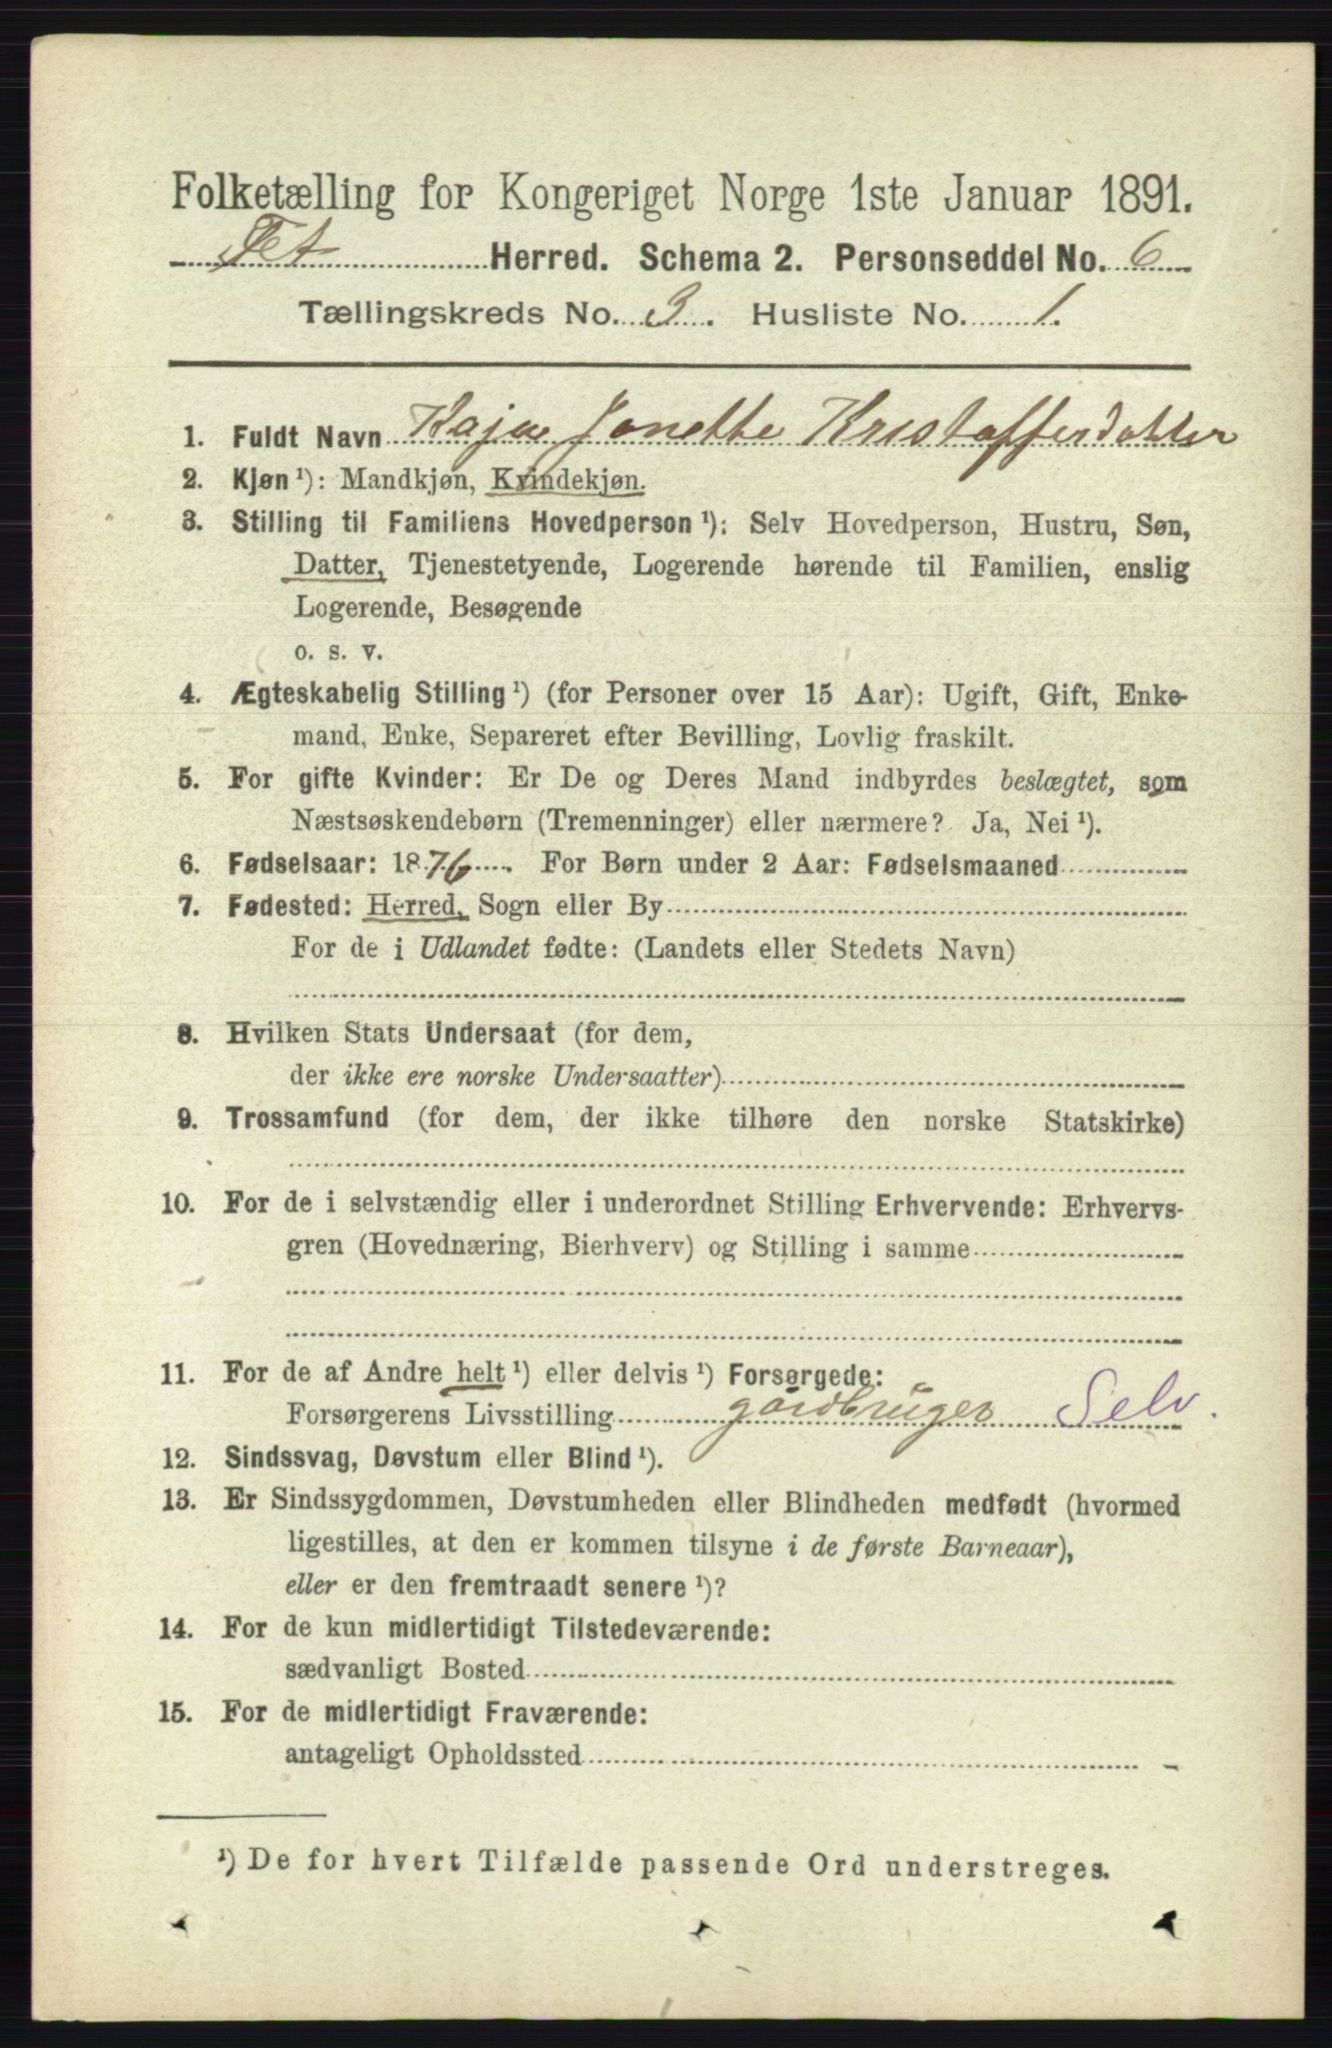 Folketælling for Kongeriget Norge 1ste Januar 1891.
Fet Herred. Schema 2. Personseddel No. 6
Tællingskreds No. 3. Husliste No. 1.
1. Fuldt Navn Kaja Jonette Kristofferdatter
2. Kjøn ¹): Mandkjøn, Kvindekjøn.
3. Stilling til Familiens Hovedperson ¹): Selv Hovedperson, Hustru, Søn,
Datter, Tjenestetyende, Logerende hørende til Familien, enslig
Logerende, Besøgende
o. s. v.
4. Ægteskabelig Stilling ¹) (for Personer over 15 Aar): Ugift, Gift, Enke-
mand, Enke, Separeret efter Bevilling, Lovlig fraskilt.
5. For gifte Kvinder: Er De og Deres Mand indbyrdes beslægtet, som
Næstsøskendebørn (Tremenninger) eller nærmere? Ja, Nei ¹).
6. Fødselsaar: 1876. For Børn under 2 Aar: Fødselsmaaned
7. Fødested: Herred, Sogn eller By
For de i Udlandet fødte: (Landets eller Stedets Navn)
8. Hvilken Stats Undersaat (for dem,
der ikke ere norske Undersaatter)
9. Trossamfund (for dem, der ikke tilhøre den norske Statskirke)
10. For de i selvstændig eller i underordnet Stilling Erhvervende: Erhvervs-
gren (Hovednæring, Bierhverv) og Stilling i samme
11. For de af Andre helt ¹) eller delvis ¹) Forsørgede:
Forsørgerens Livsstilling gårdbruger Selv.
12. Sindssvag, Døvstum eller Blind ¹).
13. Er Sindssygdommen, Døvstumheden eller Blindheden medfødt (hvormed
ligestilles, at den er kommen tilsyne i de første Barneaar),
eller er den fremtraadt senere ¹)?
14. For de kun midlertidigt Tilstedeværende:
sædvanligt Bosted
15. For de midlertidigt Fraværende:
antageligt Opholdssted
¹) De for hvert Tilfælde passende Ord understreges.